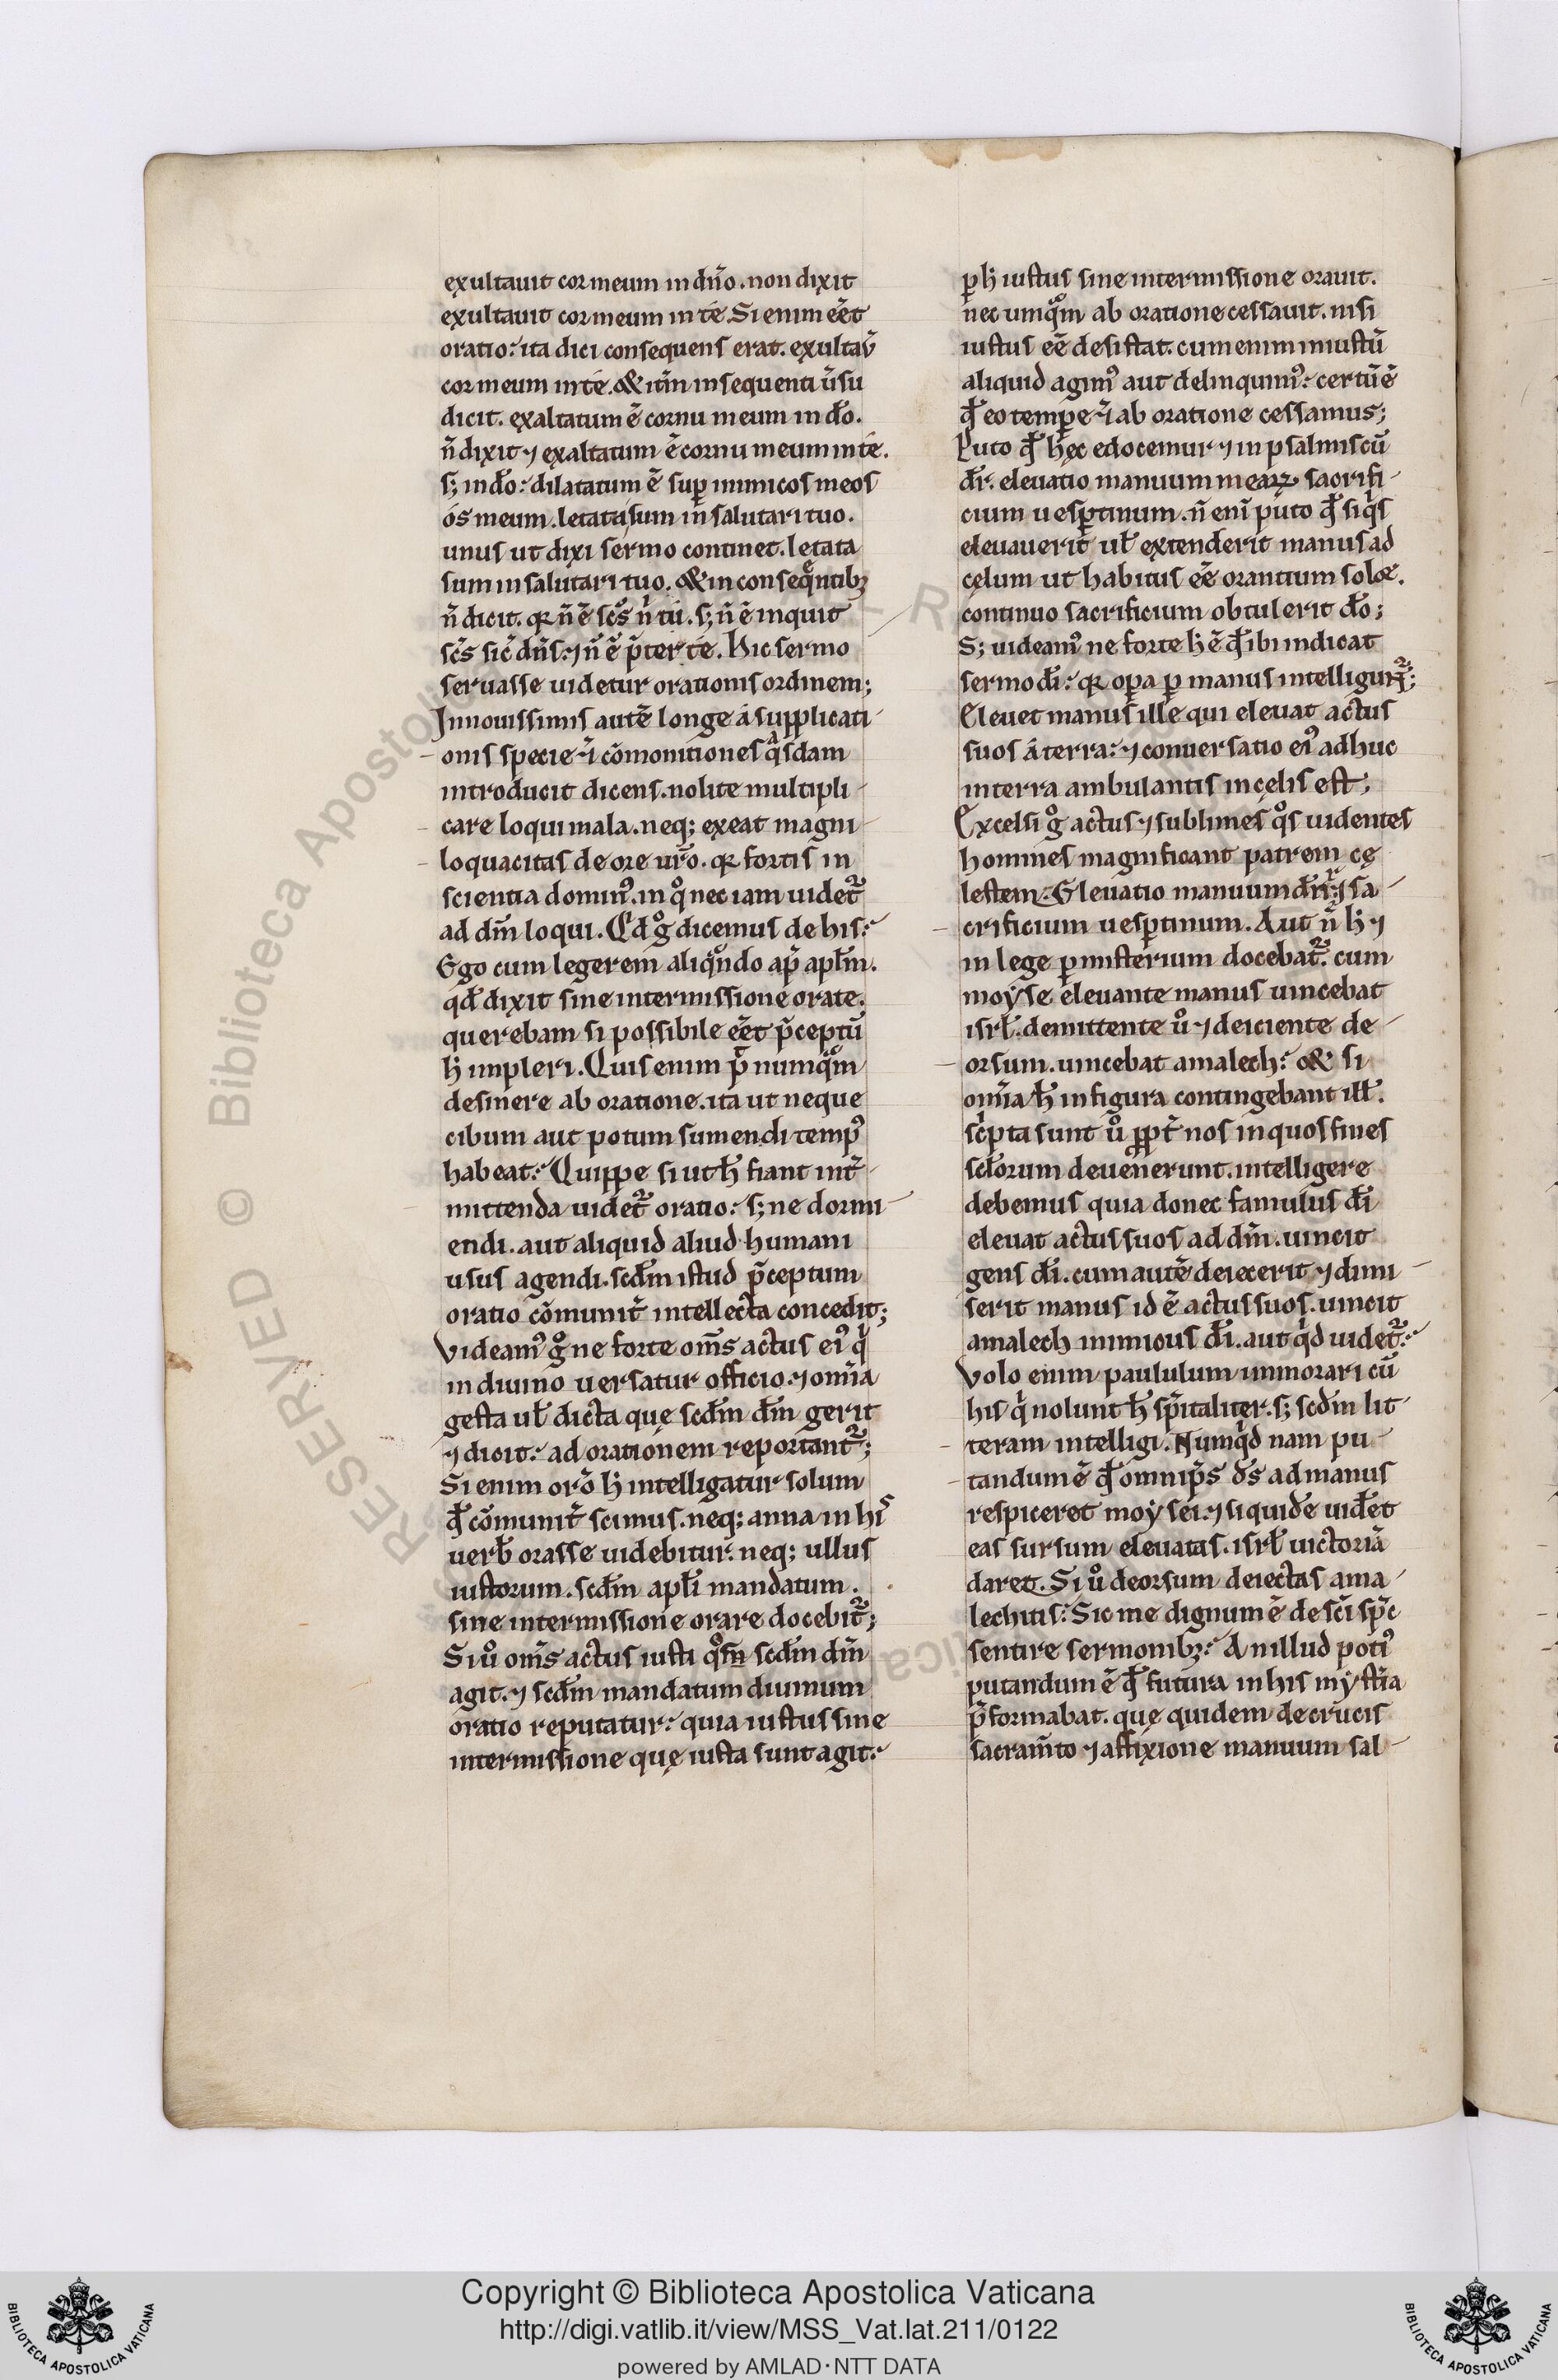 exultauit cor meum in dn̄o. non dixit
exultauit cor meum in te. Si enim eēt
oratio: ita dici consequens erat. exultaū
cor meum in te. & itm̄ in sequenti ūsu
dicit. exaltatum ē cornu meum in do̅.
n̄ dixit ⁊ exaltatum ē cornu meum in te.
s; in do̅: dilatatum ē sup̱ inimicos meos
os meum. letata sum in salutari tuo.
unus ut dixi sermo continet. letata
sum in salutari tuo. & in conseqͣntibꝫ
n̄ dicit. qꝛ n̄ ē scs̄ nͥ tu. s; n̄ ē inquit
scs̄ sic̄ dn̄s. ⁊ n̄ ē p̄ter te. Hic sermo
seruasse uidetur orationis ordinem;
In nouissimis autē longe a supplicati
onis specie ⁊ī cōmonitiones qͣsdam
introducit dicens. nolite multipli
care loqui mala. neq; exeat magni
loquacitas de ore ur̄o. qꝛ fortis in
scientia dominꝰ. in qͦ nec iam uidet᷑
ad dm̄ loqui. Qͥd gͦ dicemus de his:
Ego cum legerem aliqͣndo ap̄ aplm̄.
qd̄ dixit sine intermissione orate.
querebam si possibile eēt p̄ceptū
h̄ impleri. Quis enim p̄t numqͣm
desinere ab oratione. ita ut neque
cibum aut potum sumendi tempꝰ
habeat: Quippe si ut h̄ fiant int̄
mittenda uidet᷑ oratio: s; ne dormi
endi. aut aliquid aliud humani
usus agendi. scdm̄ istud p̄ceptum
oratio cōmunit̄ intellecta concedit;
Videamꝰ gͦ ne forte om̄s actus eiꝰ qͥ
in diuino uersatur officio. ⁊ omīa
gesta ul̄ dicta que scdm̄ dm̄ gerit
⁊ dicit: ad orationem reportant᷑;
Si enim orō h̄ intelligatur solum
qđ cōmunit̄ scimus. neq; anna in hiˢ
uerb̄ orasse uidebitur. neq; ullus
iustorum. scdm̄ apl̄i mandatum.
sine intermissione orare docebit᷑;
Si uͦ om̄s actus iusti qͦs scdm̄ dm̄
agit. ⁊ scdm̄ mandatum diuinum
oratio reputatur: quia iustus sine
intermissione que iusta sunt agit:
p̱ h̄ iustus sine intermissione orauit.
nec umqͣm ab oratione cessauit. nisi
iustus eē desistat. cum enim iniustū
aliquid agimꝰ aut delinquimꝰ: certū ē
qđ eo tempe ⁊ī ab oratione cessamus;
Puto qđ hec edocemur ⁊ in psalmis cū
dr̄. eleuatio manuum mearꝝ sacrifi
cium uesp̱tinum. n̄ enī puto qđ siqͥs
eleuauerit ul̄ extenderit manus ad
celum ut habitus eē orantium solꝫ.
continuo sacrificium obtulerit do̅;
S; uideamꝰ ne forte h̄ ē qđ ibi indicat
sermo dī: qꝛ opa p̱ manus intelligunt᷑;
Eleuet manus ille qui eleuat actus
suos a terra: ⁊ conuersatio eiꝰ adhuc
in terra ambulantis in celis est;
Excelsi gͦ actus ⁊ sublimes qͦs uidentes
homines magnificant patrem ce
lestem. Eleuatio manuum dn̄r. ⁊ sa
crificium uesp̱tinum. Aut n̄ h̄ ⁊
in lege p̱ misterium docebat᷑. cum
moẏse eleuante manus uincebat
isrl̄. demittente uͦ ⁊ deiciente de
orsum. uincebat amalech: & si
omīa h̄ in figura contingebant ill̄.
scͥpta sunt uͦ ppt̄ nos in quos fines
scl̄orum deuenerunt. intelligere
debemus quia donec famulus dī
eleuat actus suos ad dm̄. uincit
gens dī. cum autē deiecerit ⁊ dimi
serit manus id ē actus suos. uincit
amalech inimicus dī. aut qͥd uidet᷑:
Volo enim paululum immorari cū
his qͥ nolunt h̄ sp̄italiter. s; scdm̄ lit
teram intelligi. Numqͥd nam pu
tandum ē qđ omnip̄s ds̄ ad manus
respiceret moẏsei. ⁊ siquidē uid̄et
eas sursum eleuatas. isrl̄ uictoriā
daret. Si uͦ deorsum deiectas ama
lechitis: Sic me dignum ē de scī sp̄c
sentire sermonibꝫ: An illud potiꝰ
putandum ē qđ futura in his mẏstīa
p̄formabat. que quidem de crucis
sacram̄to ⁊ affixione manuum sal
RESERVED © Biblioteca Apostolica
Copyright © Biblioteca Apostolica Vaticana
http://digi.vatlib.it/view/MSS_Vat.lat.211/0122
powered by AMLAD·NTT DATA
BIBLIOTECA APOSTOLICA VATICANA
BIBLIOTECA APOSTOLICA VATICANA